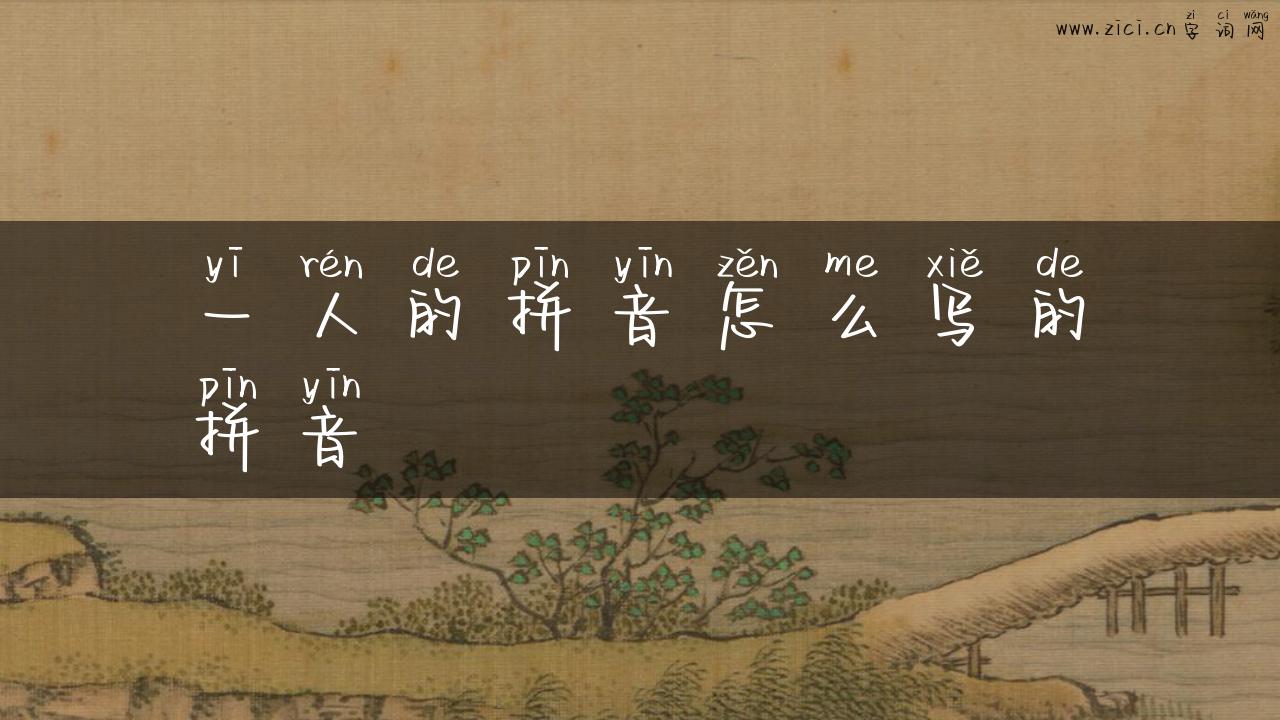 zì cí wǎng
www.zici.cn 字 词 网
yī rén de pīn yīn zěn me xiě de
一 人 的 拼 音 怎 么 写 的
pīn yīn
拼 音